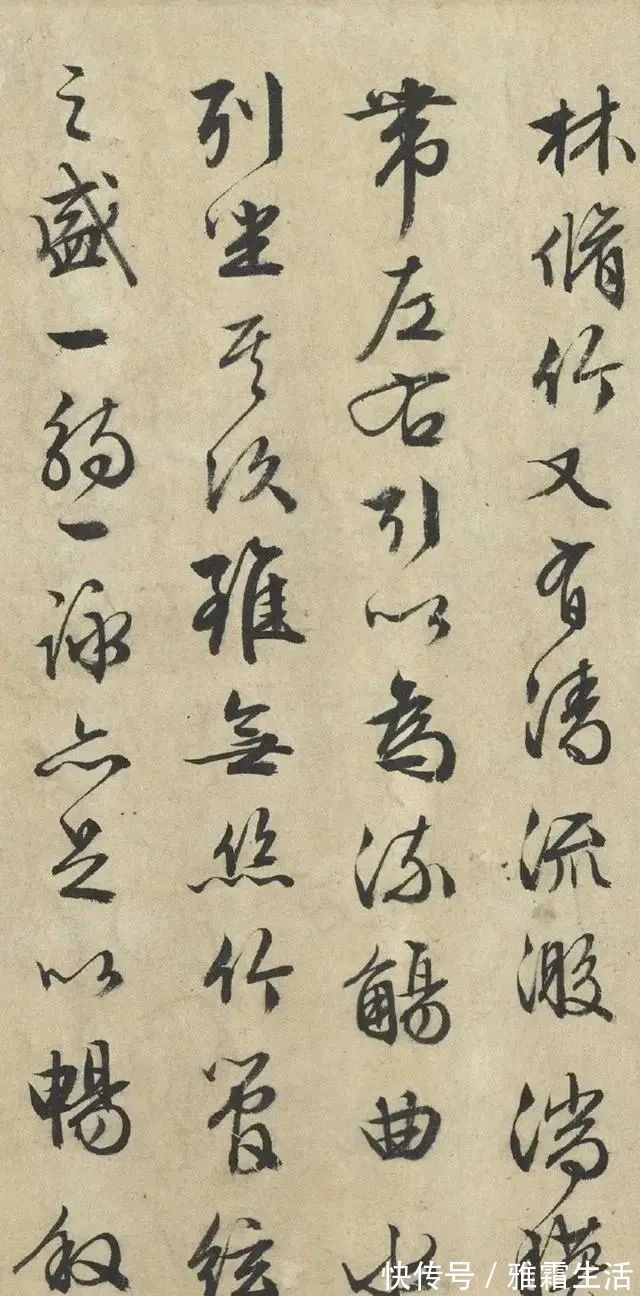 林脩竹又有清流激湍暎
帶左右引以為流觴曲水
列坐其次雖無絲竹管絃
之盛一觴一詠亦足以暢叙
快传号 / 雅霜生活